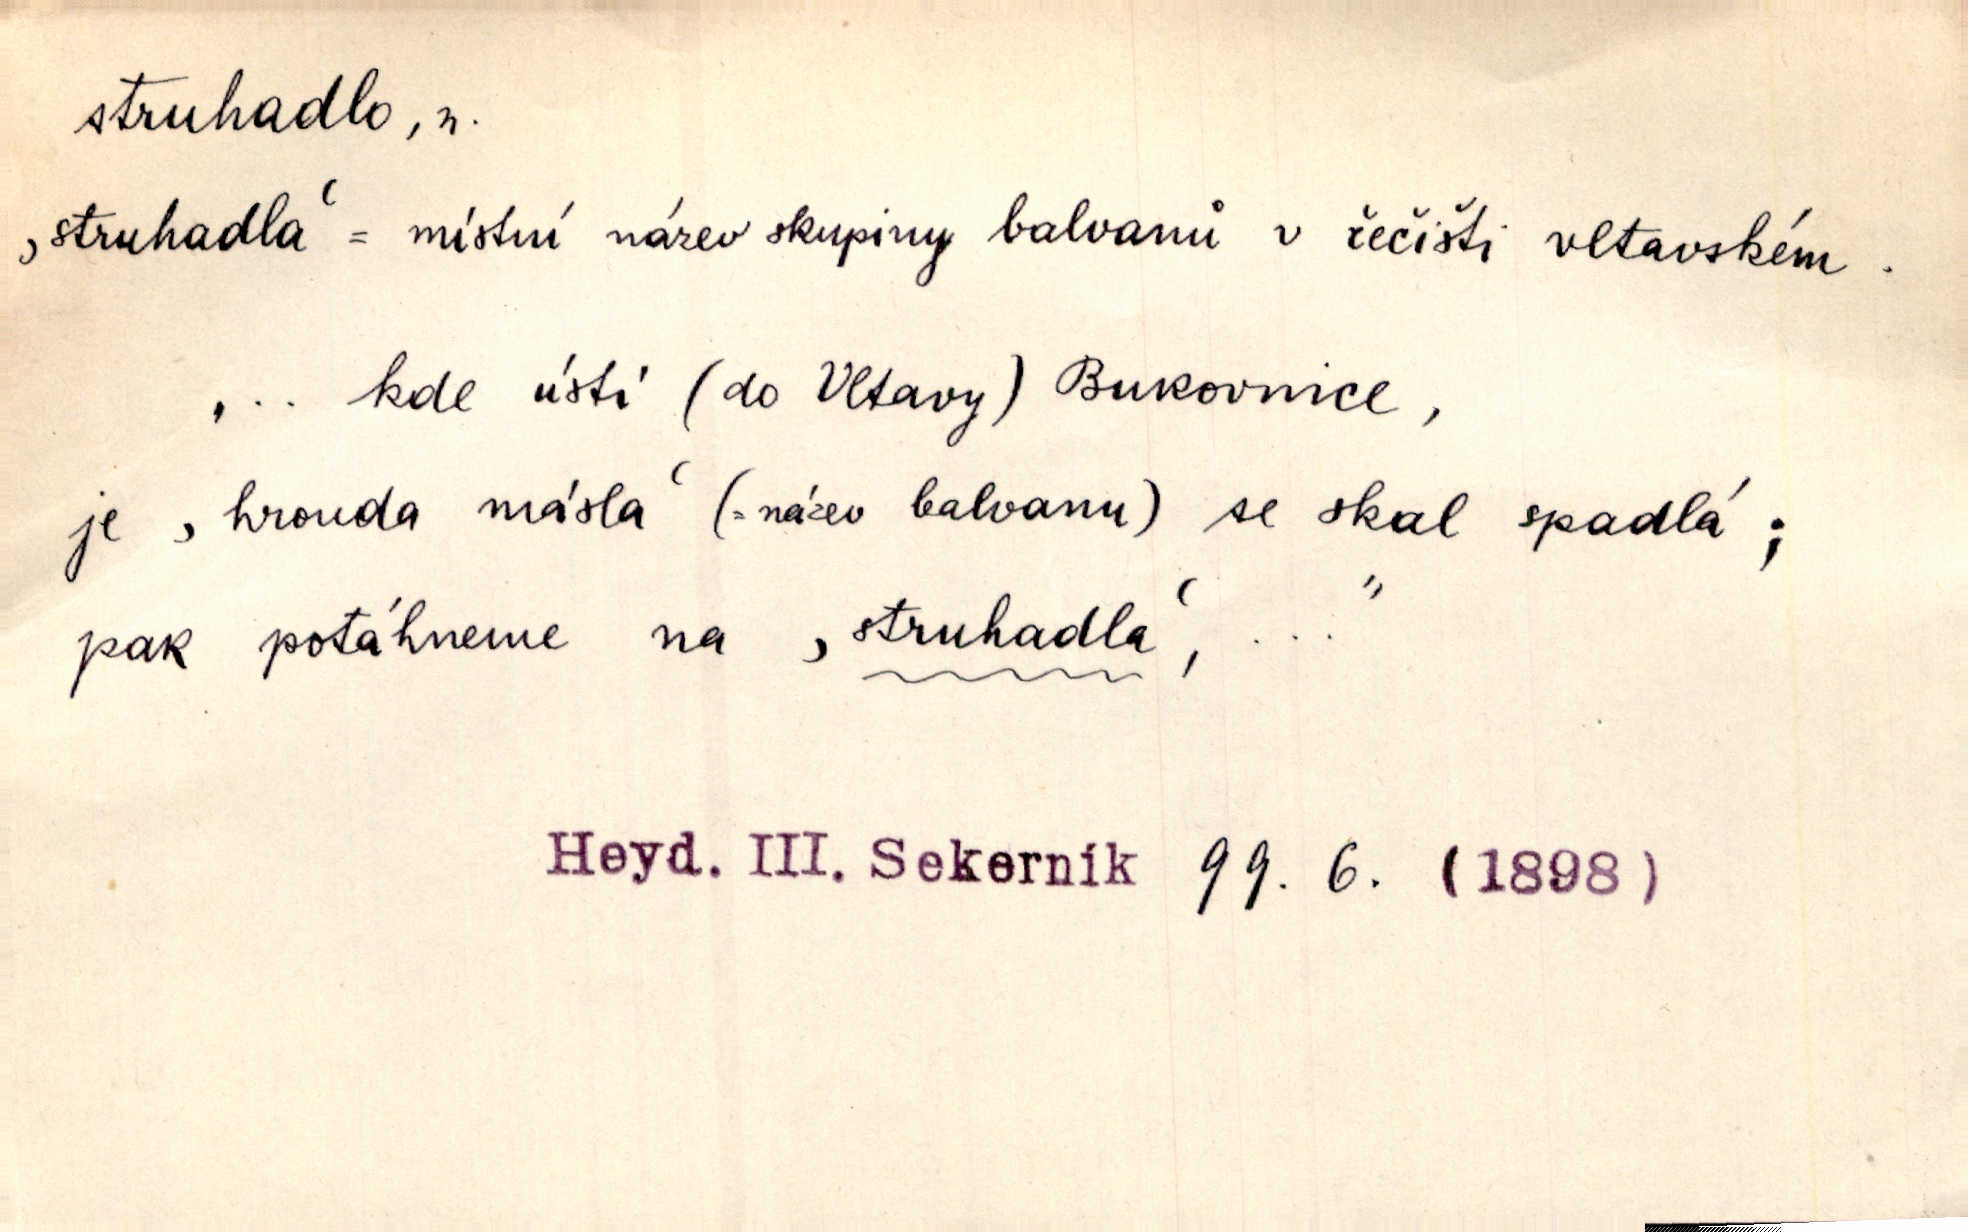 struhadlo, n.
‚struhadla‘ = místní název skupiny balvanů v řečišti vltavském.
„... kde ústí (do Vltavy) Bukovnice,
je ‚hrouda másla‘ (= název balvanu) se skal spadlá;
pak potáhneme na ‚struhadla‘, ..."
Heyd. III. Sekerník 99. 6. (1898)